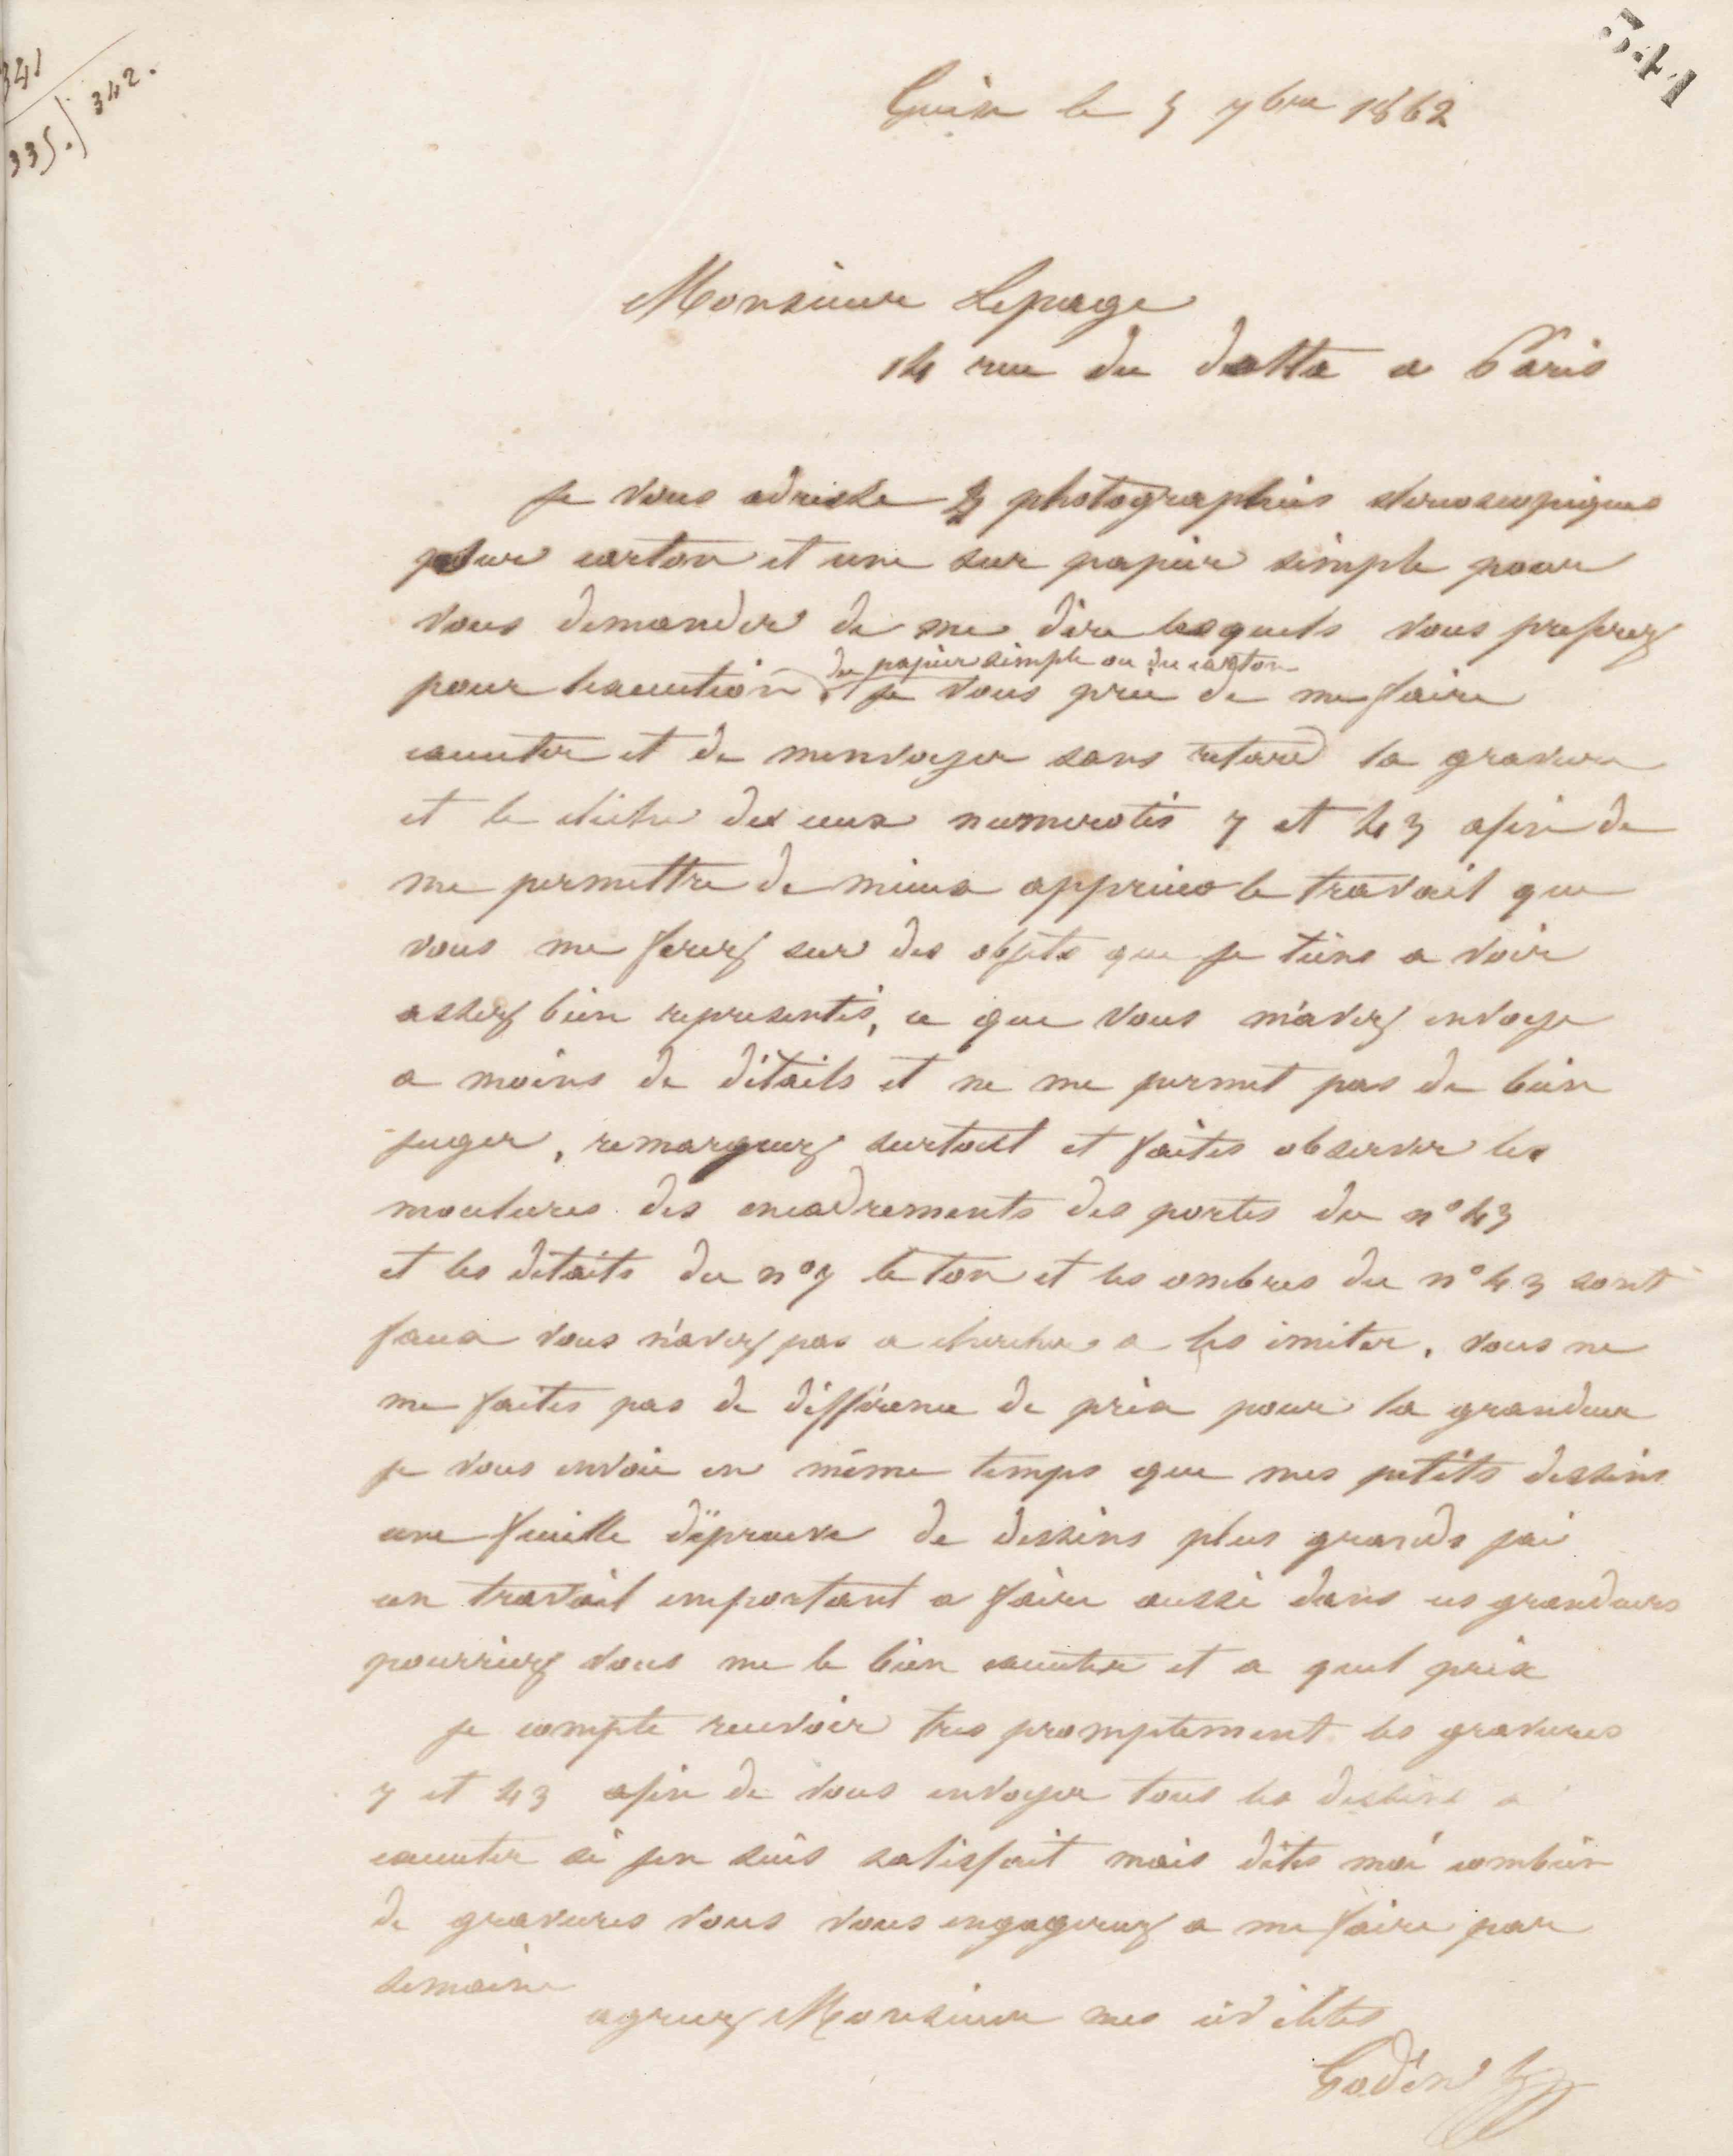 341
335. 342.
341
Guise le 5 7bre 1862
Monsieur Lepage
14 rue du delta a Paris
je vous adresse 3 photographies stereoscopiques
sur carton et une sur papier simple pour
vous demander de me dire lesquels vous preferez
du papier simple ou du carton
pour lexecution. je vous prie de me faire
executer et de menvoyer sans retard la gravure
et le cliche de ceux numerotés 7 et 43 afin de
me permettre de mieux apprecier le travail que
vous me ferez sur des objets que je tiens a voir
assez bien representés, ce que vous m'avez envoye
a moins de détails et ne me permet pas de bien
juger, remarquez surtout et faites observer les
moulures des encadrements des portes du n° 43
et les details du n° 7 le ton et les ombres du n° 43 sont
faux vous n'avez pas a chercher a les imiter. vous ne
me faites pas de différence de prix pour la grandeur
je vous envoie en même temps que mes petits dessins
une feuille d'épreuve de dessins plus grands jai
un travail important a faire aussi dans ces grandeurs
pourriez vous me le bien executer et a quel prix
je compte recevoir tres promptement les gravures
7 et 43 afin de vous envoyer tous les dessins a
executer si jen suis satisfait mais dites moi combien
de gravures vous vous engagerez a me faire par
semaine
agreez Monsieur mes civilités
Godin